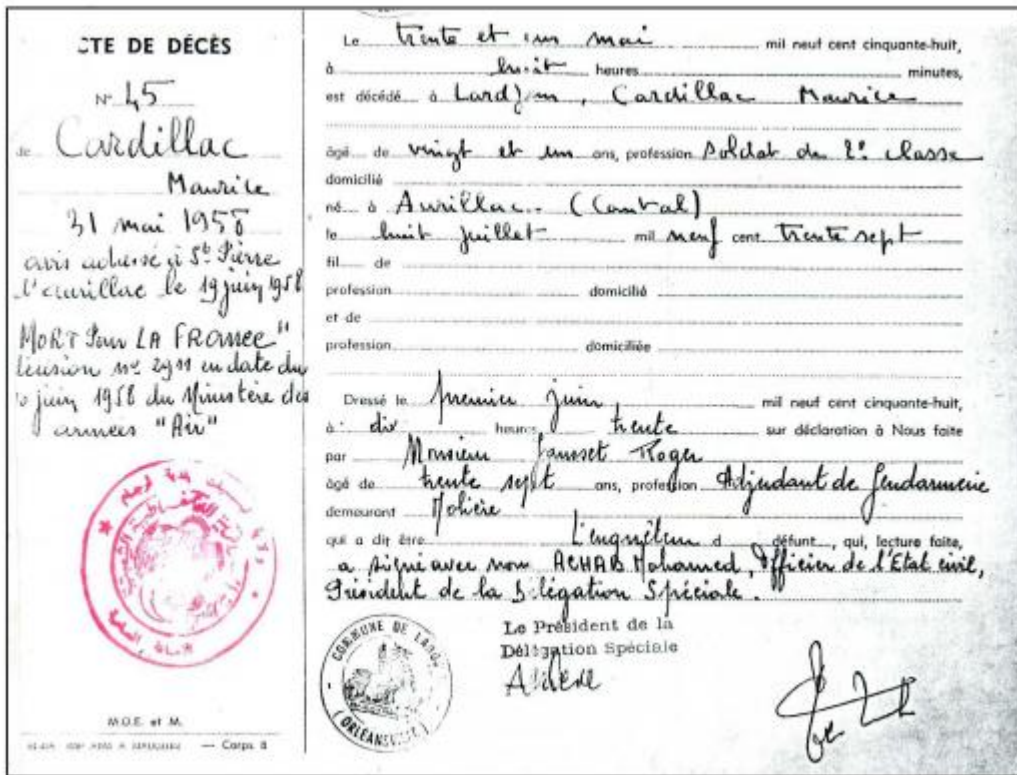 CTE DE DÉCÈS
N° 45
de Cardillac
Maurice
31 mai 1958
avis adressé à St Pierre
d'aurillac le 19 juin 1958
"MORT Pour LA FRANCE"
décision n° 2911 en date du
juin 1958 du Ministère des
armées "Air"
M.O.E. et M.
— Corps 8
Le trente et un mai mil neuf cent cinquante-huit,
à huit heures minutes,
est décédé à Lardjem, Cardillac Maurice
âgé de vingt et un ans, profession Soldat de 2e classe
domicilié
né à Aurillac (Cantal)
le huit juillet mil neuf cent trente sept
fil de
profession domicilié
et de
profession domiciliée
Dressé le premier juin mil neuf cent cinquante-huit,
à dix heures trente sur déclaration à Nous faite
par Monsieur Roger
âgé de trente sept ans, profession Adjudant de Gendarmerie
demeurant Molière
qui a dit être L'enquêteur d défunt, qui, lecture faite,
a signé avec nous ACHAB Mohamed, Officier de l'Etat civil,
Président de la Délégation Spéciale.
Le Président de la
Délégation Spéciale
COMMUNE DE
(ORLÉANSVILLE)